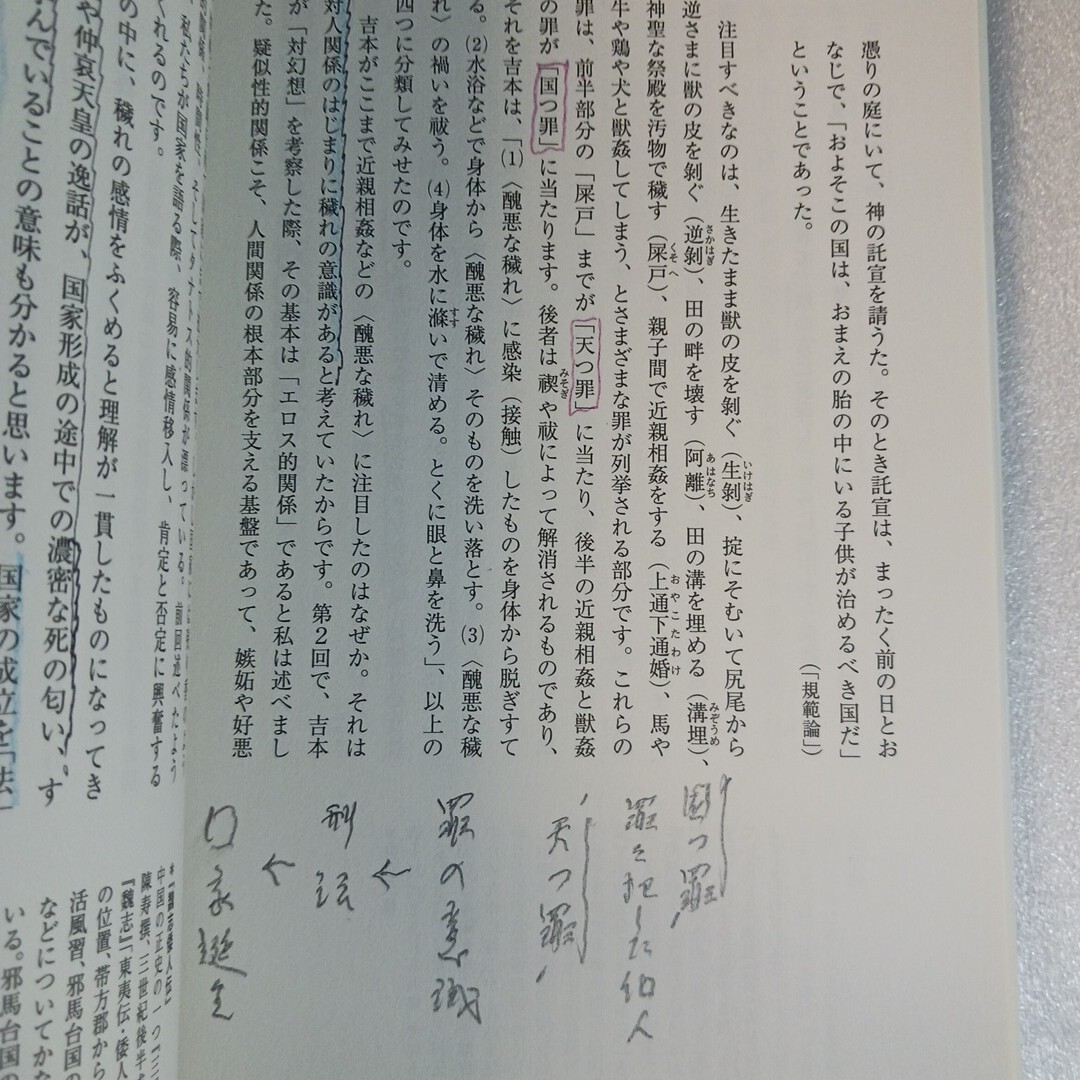 憑りの庭にいて、神の託宣を請うた。そのとき託宣は、まったく前の日とお
なじで、「およそこの国は、おまえの胎の中にいる子供が治めるべき国だ」
ということであった。
（「規範論」）
注目すべきなのは、生きたまま獣の皮を剝ぐ（生剝）、掟にそむいて尻尾から
いけはぎ
逆さまに獣の皮を剝ぐ（逆剝）、田の畔を壊す（阿離）、田の溝を埋める（溝埋）、
さかはぎ
あはなち
みぞうめ
神聖な祭殿を汚物で穢す（屎戸）、親子間で近親相姦をする（上通下通婚）、馬や
くそへ
おやこたわけ
牛や鶏や犬と獣姦してしまう、とさまざまな罪が列挙される部分です。これらの
罪は、前半部分の「屎戸」までが「天つ罪」に当たり、後半の近親相姦と獣姦
の罪が「国つ罪」に当たります。後者は禊や祓によって解消されるものであり、
みそぎ
それを吉本は、「⑴〈醜悪な穢れ〉に感染（接触）したものを身体から脱ぎすて
る。⑵水浴などで身体から〈醜悪な穢れ〉そのものを洗い落とす。⑶〈醜悪な穢
れ〉の禍いを祓う。⑷身体を水に滌いで清める。とくに眼と鼻を洗う」、以上の
すす
四つに分類してみせたのです。
吉本がここまで近親相姦などの〈醜悪な穢れ〉に注目したのはなぜか。それは
対人関係のはじまりに穢れの意識があると考えていたからです。第２回で、吉本
が「対幻想」を考察した際、その基本は「エロス的関係」であると私は述べまし
た。疑似性的関係こそ、人間関係の根本部分を支える基盤であって、嫉妬や好悪
国つ罪
罪を犯した個人
天つ罪
罪の意識
←
刑法
←
私たちが国家を語る際、容易に感情移入し、肯定と否定に興奮する
くれるのです。
の中に、穢れの感情をふくめると理解が一貫したものになってき
や仲哀天皇の逸話が、国家形成の途中での濃密な死の匂い、す
んでいることの意味も分かると思います。国家の成立を「法」
＊『魏志倭人伝』
中国の正史の一つ『三
陳寿撰、三世紀後半
『魏志』「東夷伝・倭人
の位置、帯方郡から
活風習、邪馬台国の
などについてかな
いる。邪馬台国の